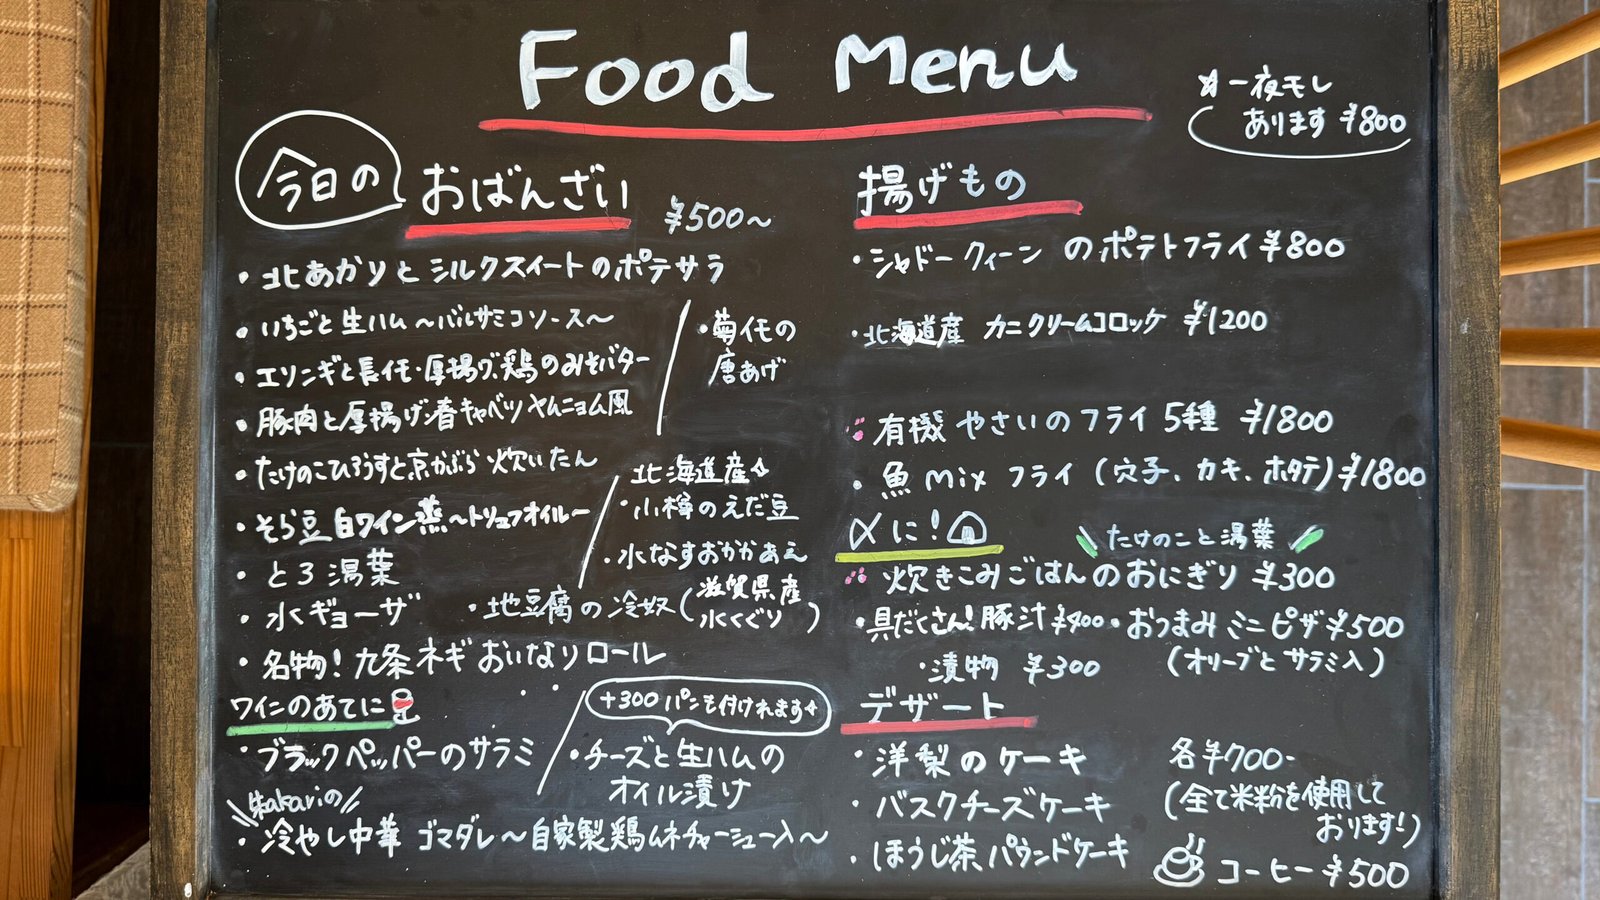 Food Menu
☆一夜モし
あります ¥800
今日の おばんざい ¥500〜
・北あかりとシルクスイートのポテサラ
・いちごと生ハム〜バルサミコソース〜
・エリンギと長イモ・厚揚げ、鶏のみそバター
・豚肉と厚揚げ春キャベツヤムニョム風
・たけのこひろうすと京かぶら炊いたん
・そら豆白ワイン蒸〜トリュフオイル〜
・とろ湯葉
・水ギョーザ
・名物！九条ネギおいなりロール
・菊イモの
唐あげ
北海道産
・小樽のえだ豆
・水なすおかかあえ
・地豆腐の冷奴(滋賀県産
水くぐり)
ワインのあてに
+300 パンも付けれます
・ブラックペッパーのサラミ
・チーズと生ハムの
オイル漬け
akariの
・冷やし中華 ゴマダレ〜自家製鶏ムネチャーシュー入〜
揚げもの
・シャドークィーンのポテトフライ ¥800
・北海道産 カニクリームコロッケ ¥1200
有機やさいのフライ 5種 ¥1800
・魚mixフライ (穴子、カキ、ホタテ) ¥1800
〆に！
たけのこと湯葉
炊きこみごはんのおにぎり ¥300
・具だくさん！豚汁 ¥400
・おつまみミニピザ ¥500
(オリーブとサラミ入)
・漬物 ¥300
デザート
・洋梨のケーキ
・バスクチーズケーキ
・ほうじ茶パウンドケーキ
各¥700-
(全て米粉を使用して
おります！)
コーヒー ¥500